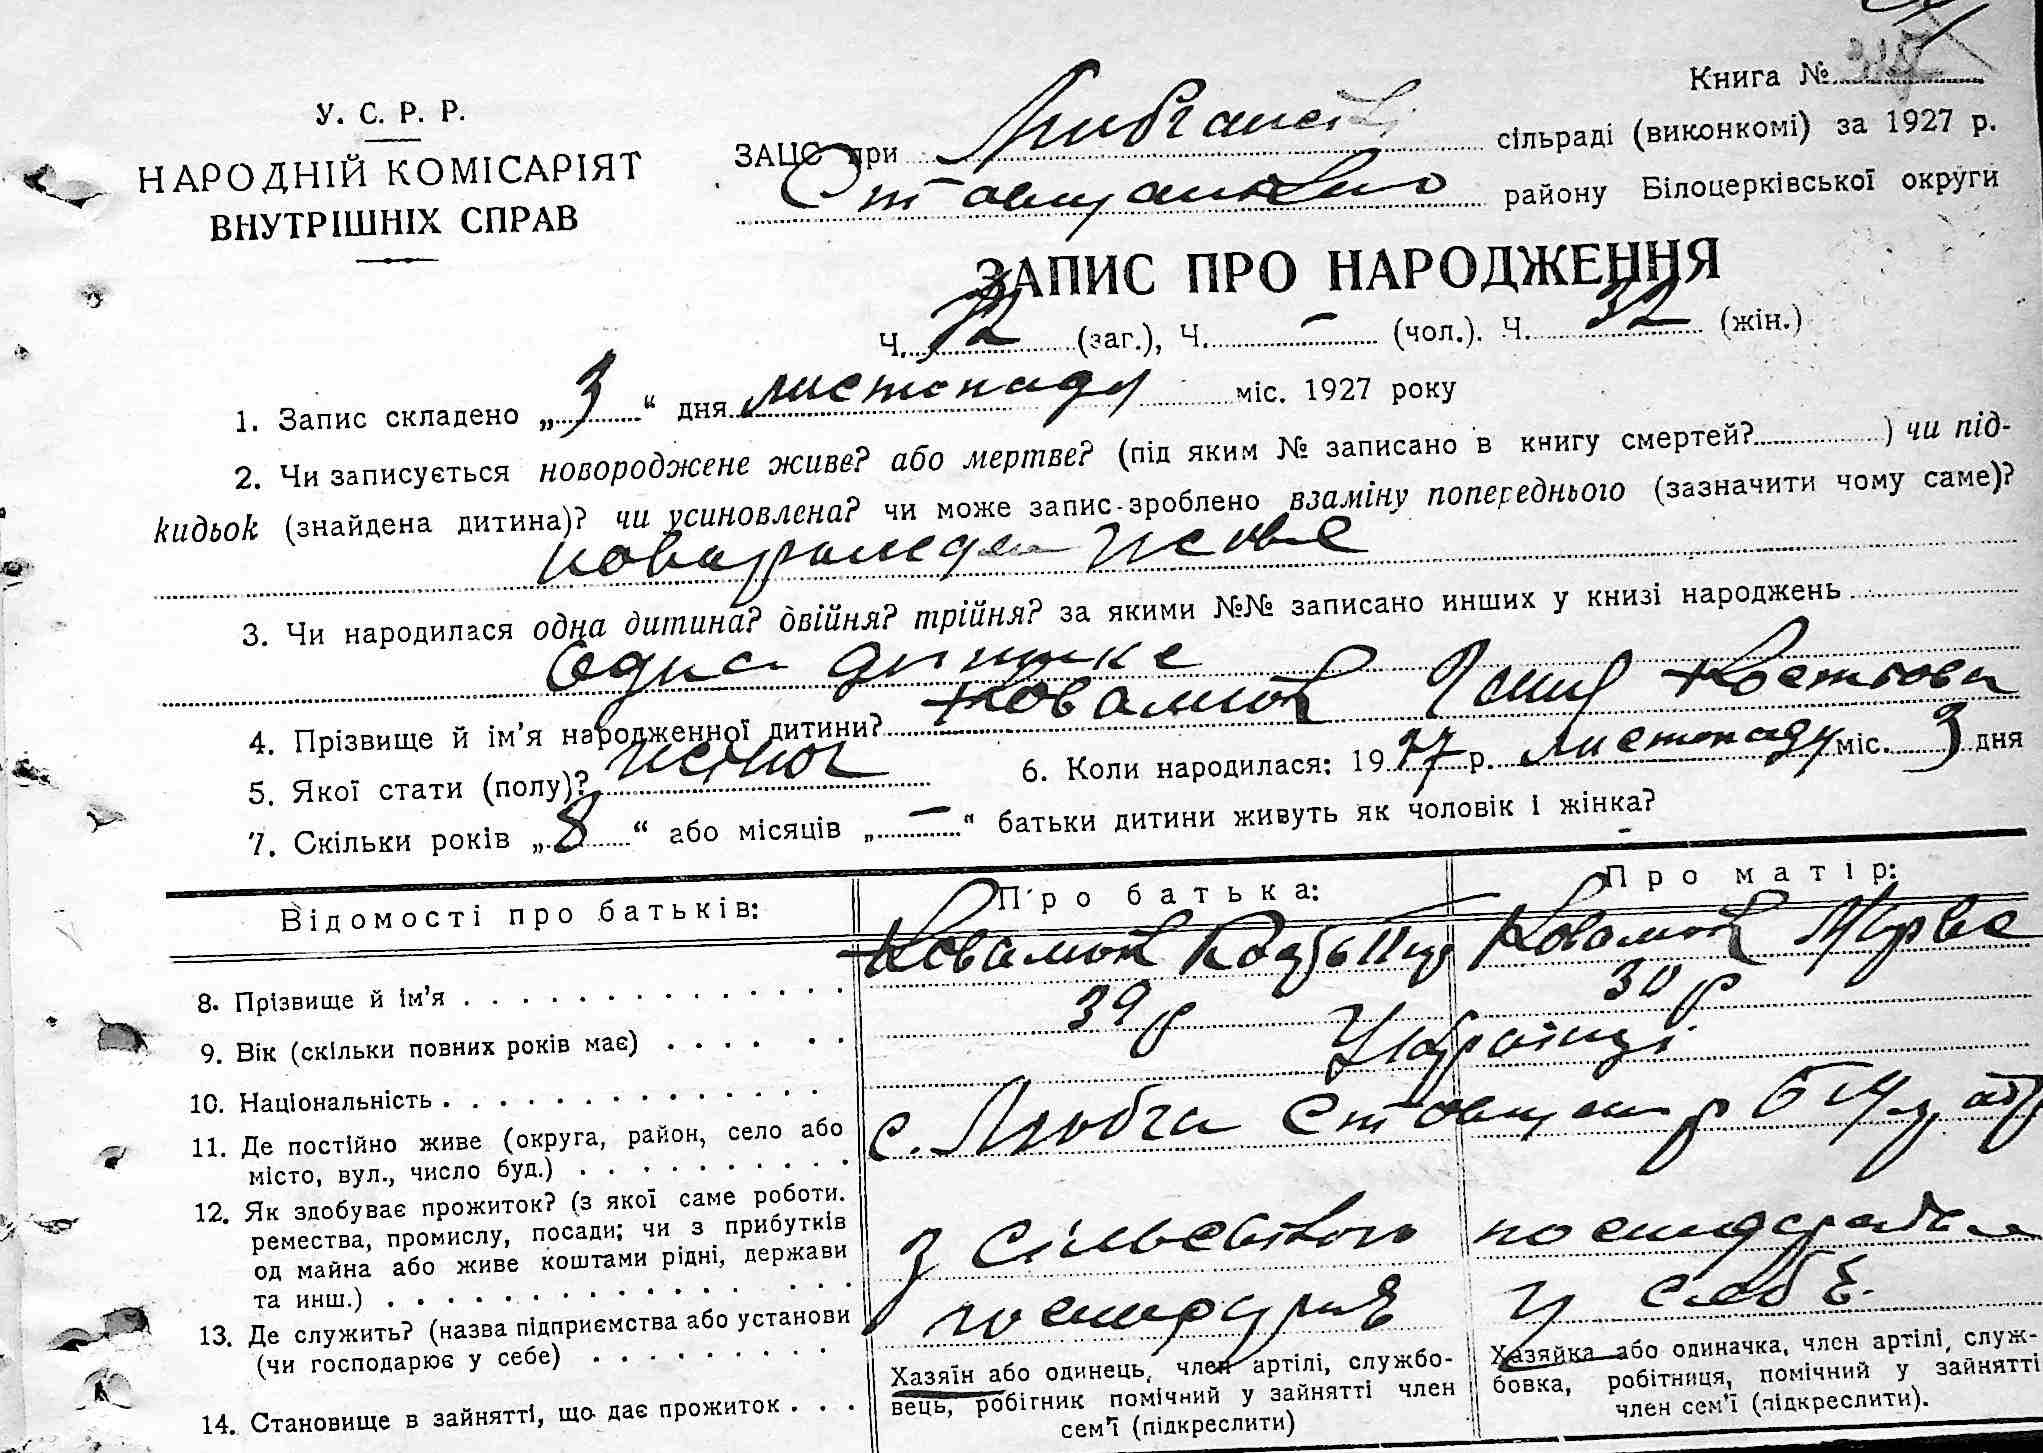 Книга №
У. С. Р. Р.
НАРОДНІЙ КОМІСАРІЯТ
ВНУТРІШНІХ СПРАВ
ЗАЦС при сільраді (виконкомі) за 1927 р.
району Білоцерківської округи
ЗАПИС ПРО НАРОДЖЕННЯ
Ч. 72 (заг.), Ч. – (чол.). Ч. 32 (жін.)
1. Запис складено „3“ дня листопаду міс. 1927 року
2. Чи записується новороджене живе? або мертве? (під яким № записано в книгу смертей? ) чи під-
кидьок (знайдена дитина)? чи усиновлена? чи може запис зроблено взаміну попереднього (зазначити чому саме)?
живе
3. Чи народилася одна дитина? двійня? трійня? за якими №№ записано инших у книзі народжень
Одна дитина
4. Прізвище й ім’я народженної дитини? Ковалюк
5. Якої стати (полу)? жіноч 6. Коли народилася: 1927 р. листопаду міс. 3 дня
7. Скільки років „8“ або місяців „–“ батьки дитини живуть як чоловік і жінка?
Відомості про батьків: Про батька: Про матір:
8. Прізвище й ім’я Ковалюк Ковалюк
9. Вік (скільки повних років має) 39 р 30 р
10. Національність Українці
11. Де постійно живе (округа, район, село або
місто, вул., число буд.) с. Любча Ставищан р
12. Як здобуває прожиток? (з якої саме роботи.
ремества, промислу, посади; чи з прибутків
од майна або живе коштами рідні, держави
та инш.) з сільського
13. Де служить? (назва підприємства або установи
(чи господарює у себе) у себе
14. Становище в зайнятті, що дає прожиток
Хазяїн або одинець, член артілі, службо-
вець, робітник помічний у зайнятті член
сем’ї (підкреслити)
Хазяйка або одиначка, член артілі, служ-
бовка, робітниця, помічний у зайнятті
член сем’ї (підкреслити).